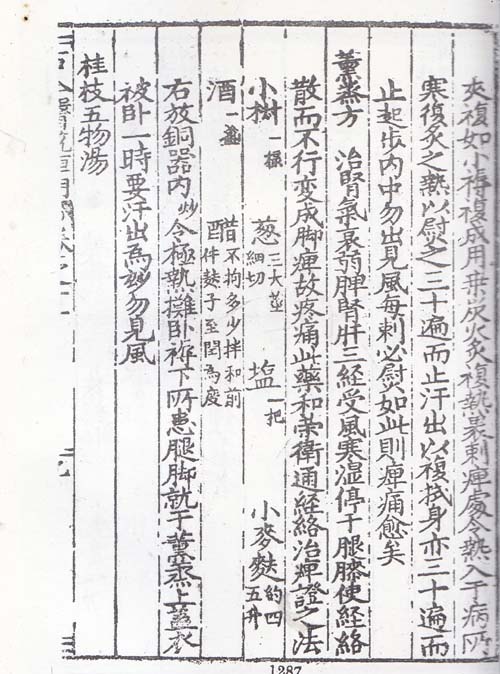 夾複如小褥複成用桒炭火炙複熱裹刺痺處令熱入于病所
寒復炙之熱以熨之三十遍而止汗出以複拭身亦三十遍而
止起歩内中勿出見風每刺必熨如此則痺痛愈矣
薰蒸方 治腎氣衰弱脾腎肝三経受風寒湿停于腿膝使経絡
散而不行变成脚痺故疼痛此藥和荣衛通経絡治痺證之法
小椒一撮 葱三大莖細切 塩一把 小麥麩約四五升
酒一盞 醋不拘多少拌和前件麩子至閏為度
右放銅器内炒令極熱攤卧褥下所患腿脚就于薰蒸上盖衣
被卧一時要汗出為妙勿見風
桂枝五物湯
1287